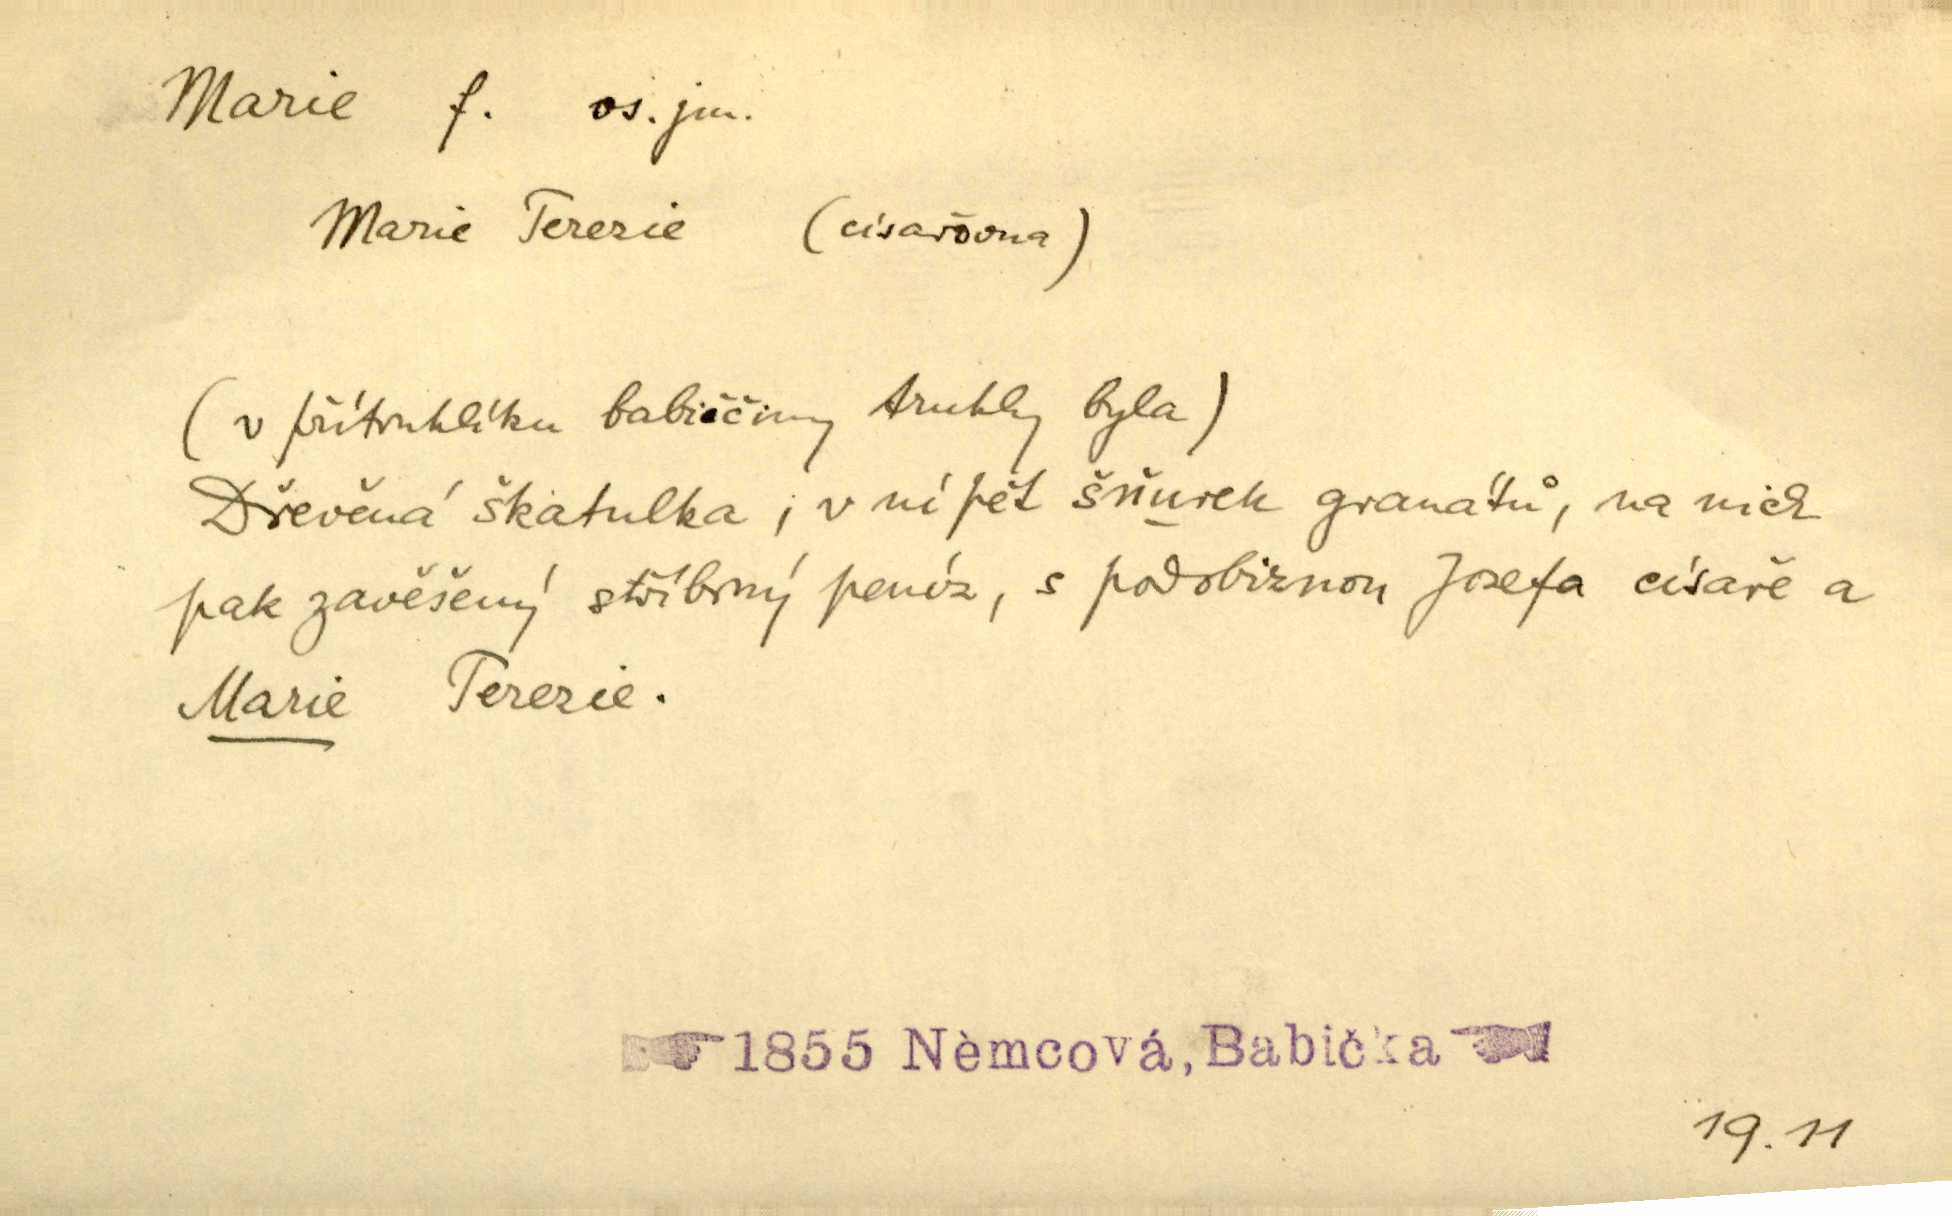 Marie f. os. jm.
Marie Terezie (císařovna)
(v přítruhlíku babiččiny truhly byla)
Dřevěná škatulka, v ní pět šňurek granátů, na nich
pak zavěšený stříbrný peníz, s podobiznou Josefa císaře a
Marie Terezie.
1855 Němcová, Babička
19. 11